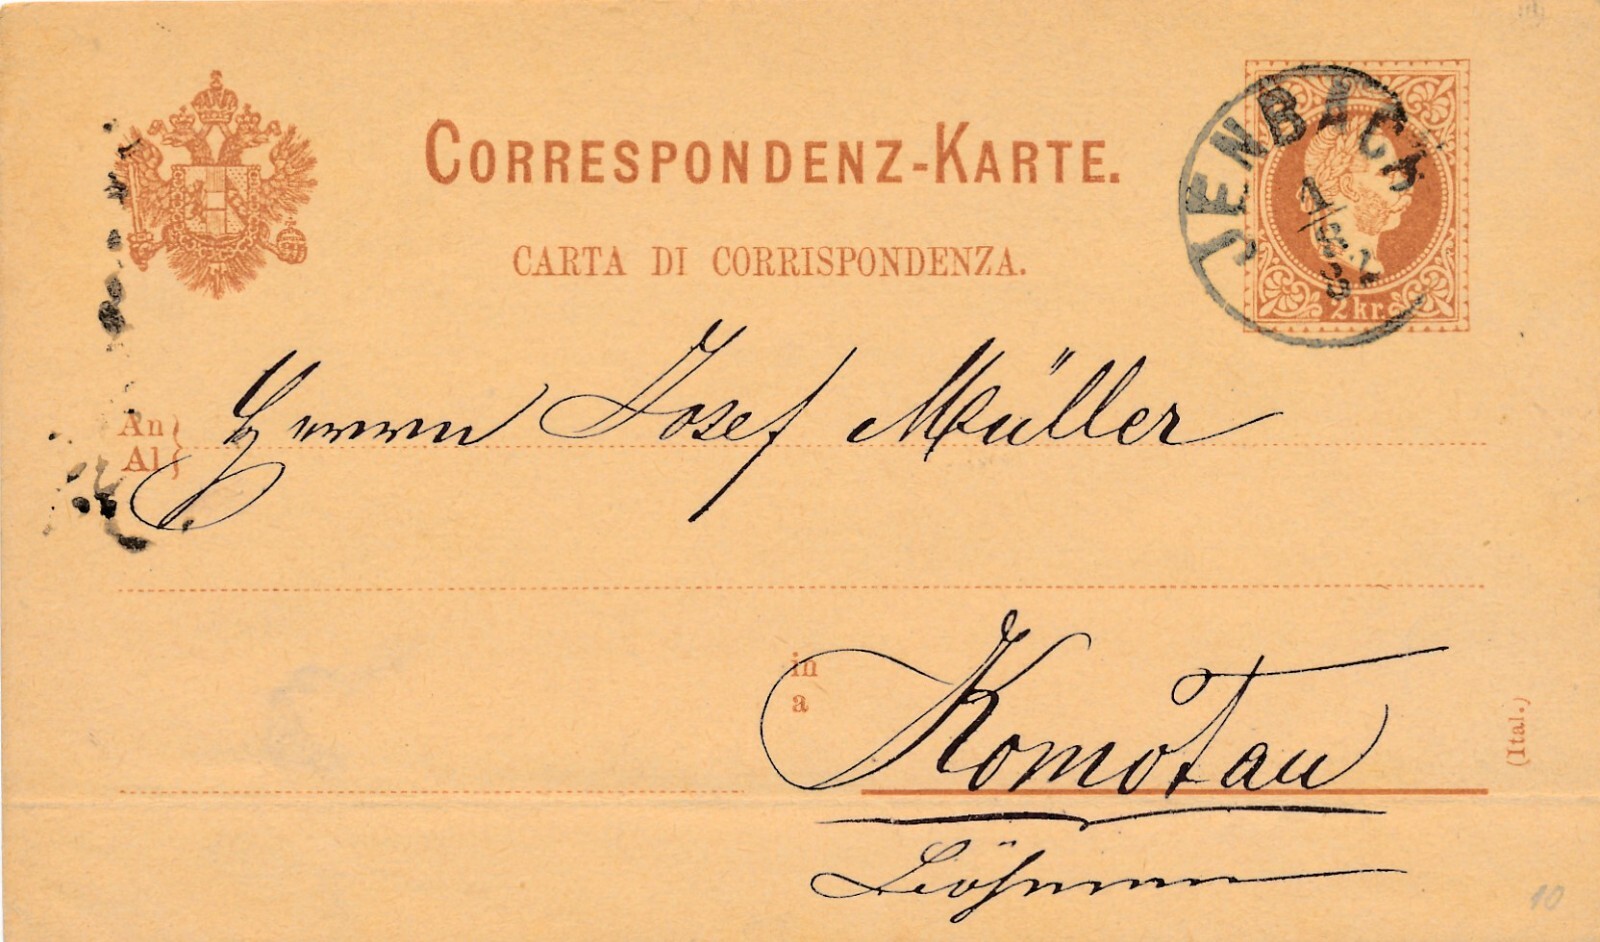 CORRESPONDENZ-KARTE.
CARTA DI CORRISPONDENZA.
JENBACH
2 kr.
An
Al
Herrn Josef Müller
in
a
Komotau
Böhmen
(Ital.)
10